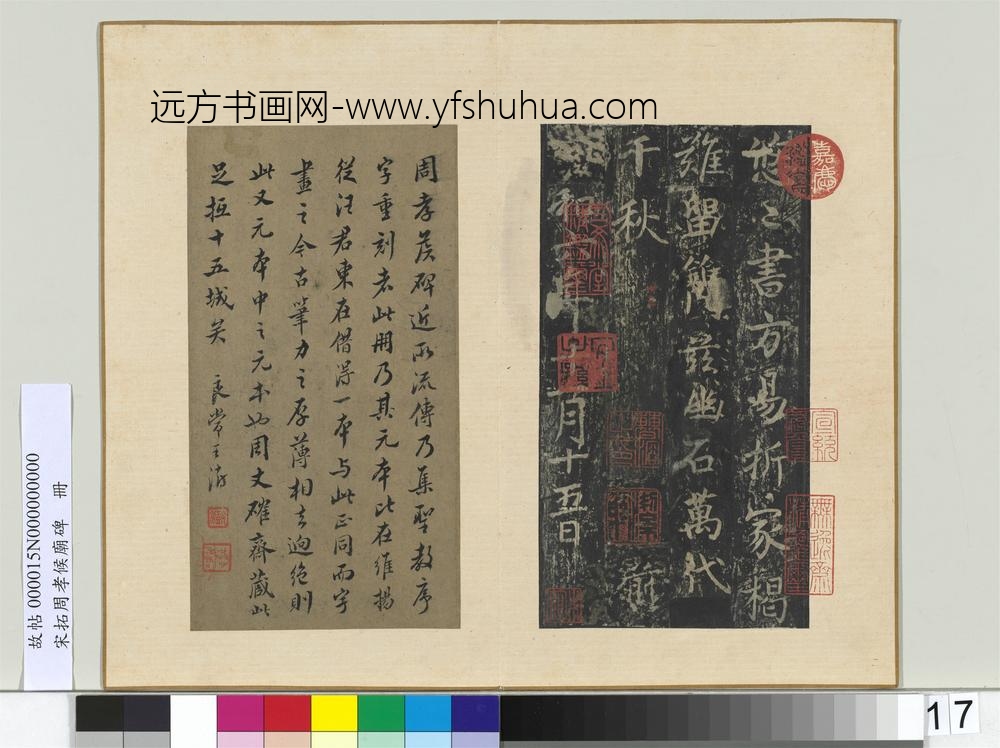 远方书画网-www.yfshuhua.com
嘉慶
悠〻書方易折家楬
雖留簡茲幽石萬代
千秋
月十五日
宣統
無逸齋
周孝矦碑近所流傳乃集聖教序
字重刻者此冊乃其元本比在維揚
從汪君東在借得一本与此正同而字
畫之今古筆力之厚薄相去迥绝則
此又元本中之元本也周丈確齋蔵此
足抵十五城矣
良常王澍
故帖 000015N000000000
宋拓周孝候廟碑 冊
17